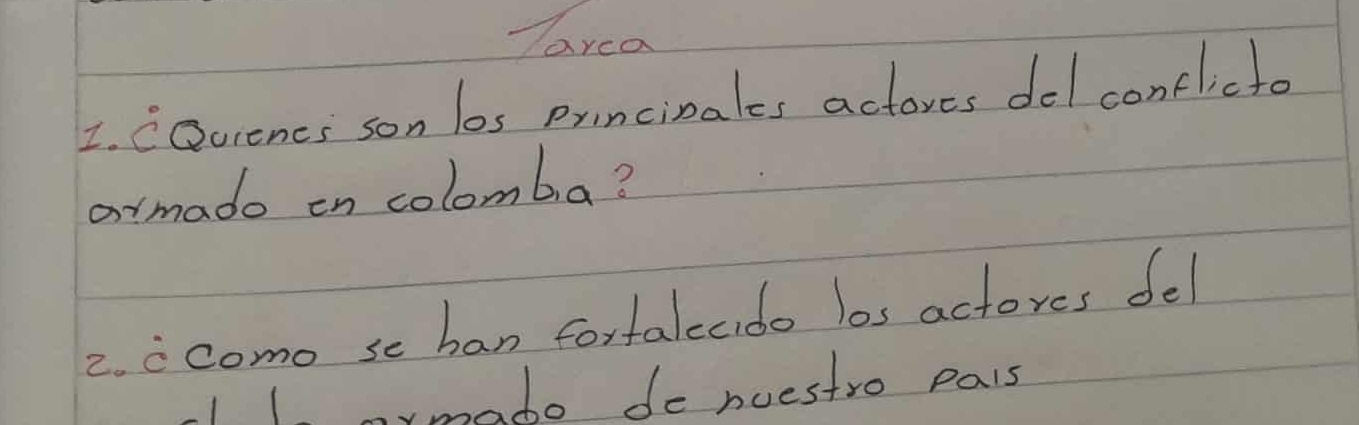 Tarea
1. ¿Quienes son los principales actores del conflicto
armado en colombia?
2. ¿Como se han fortalecido los actores del
armado de nuestro pais